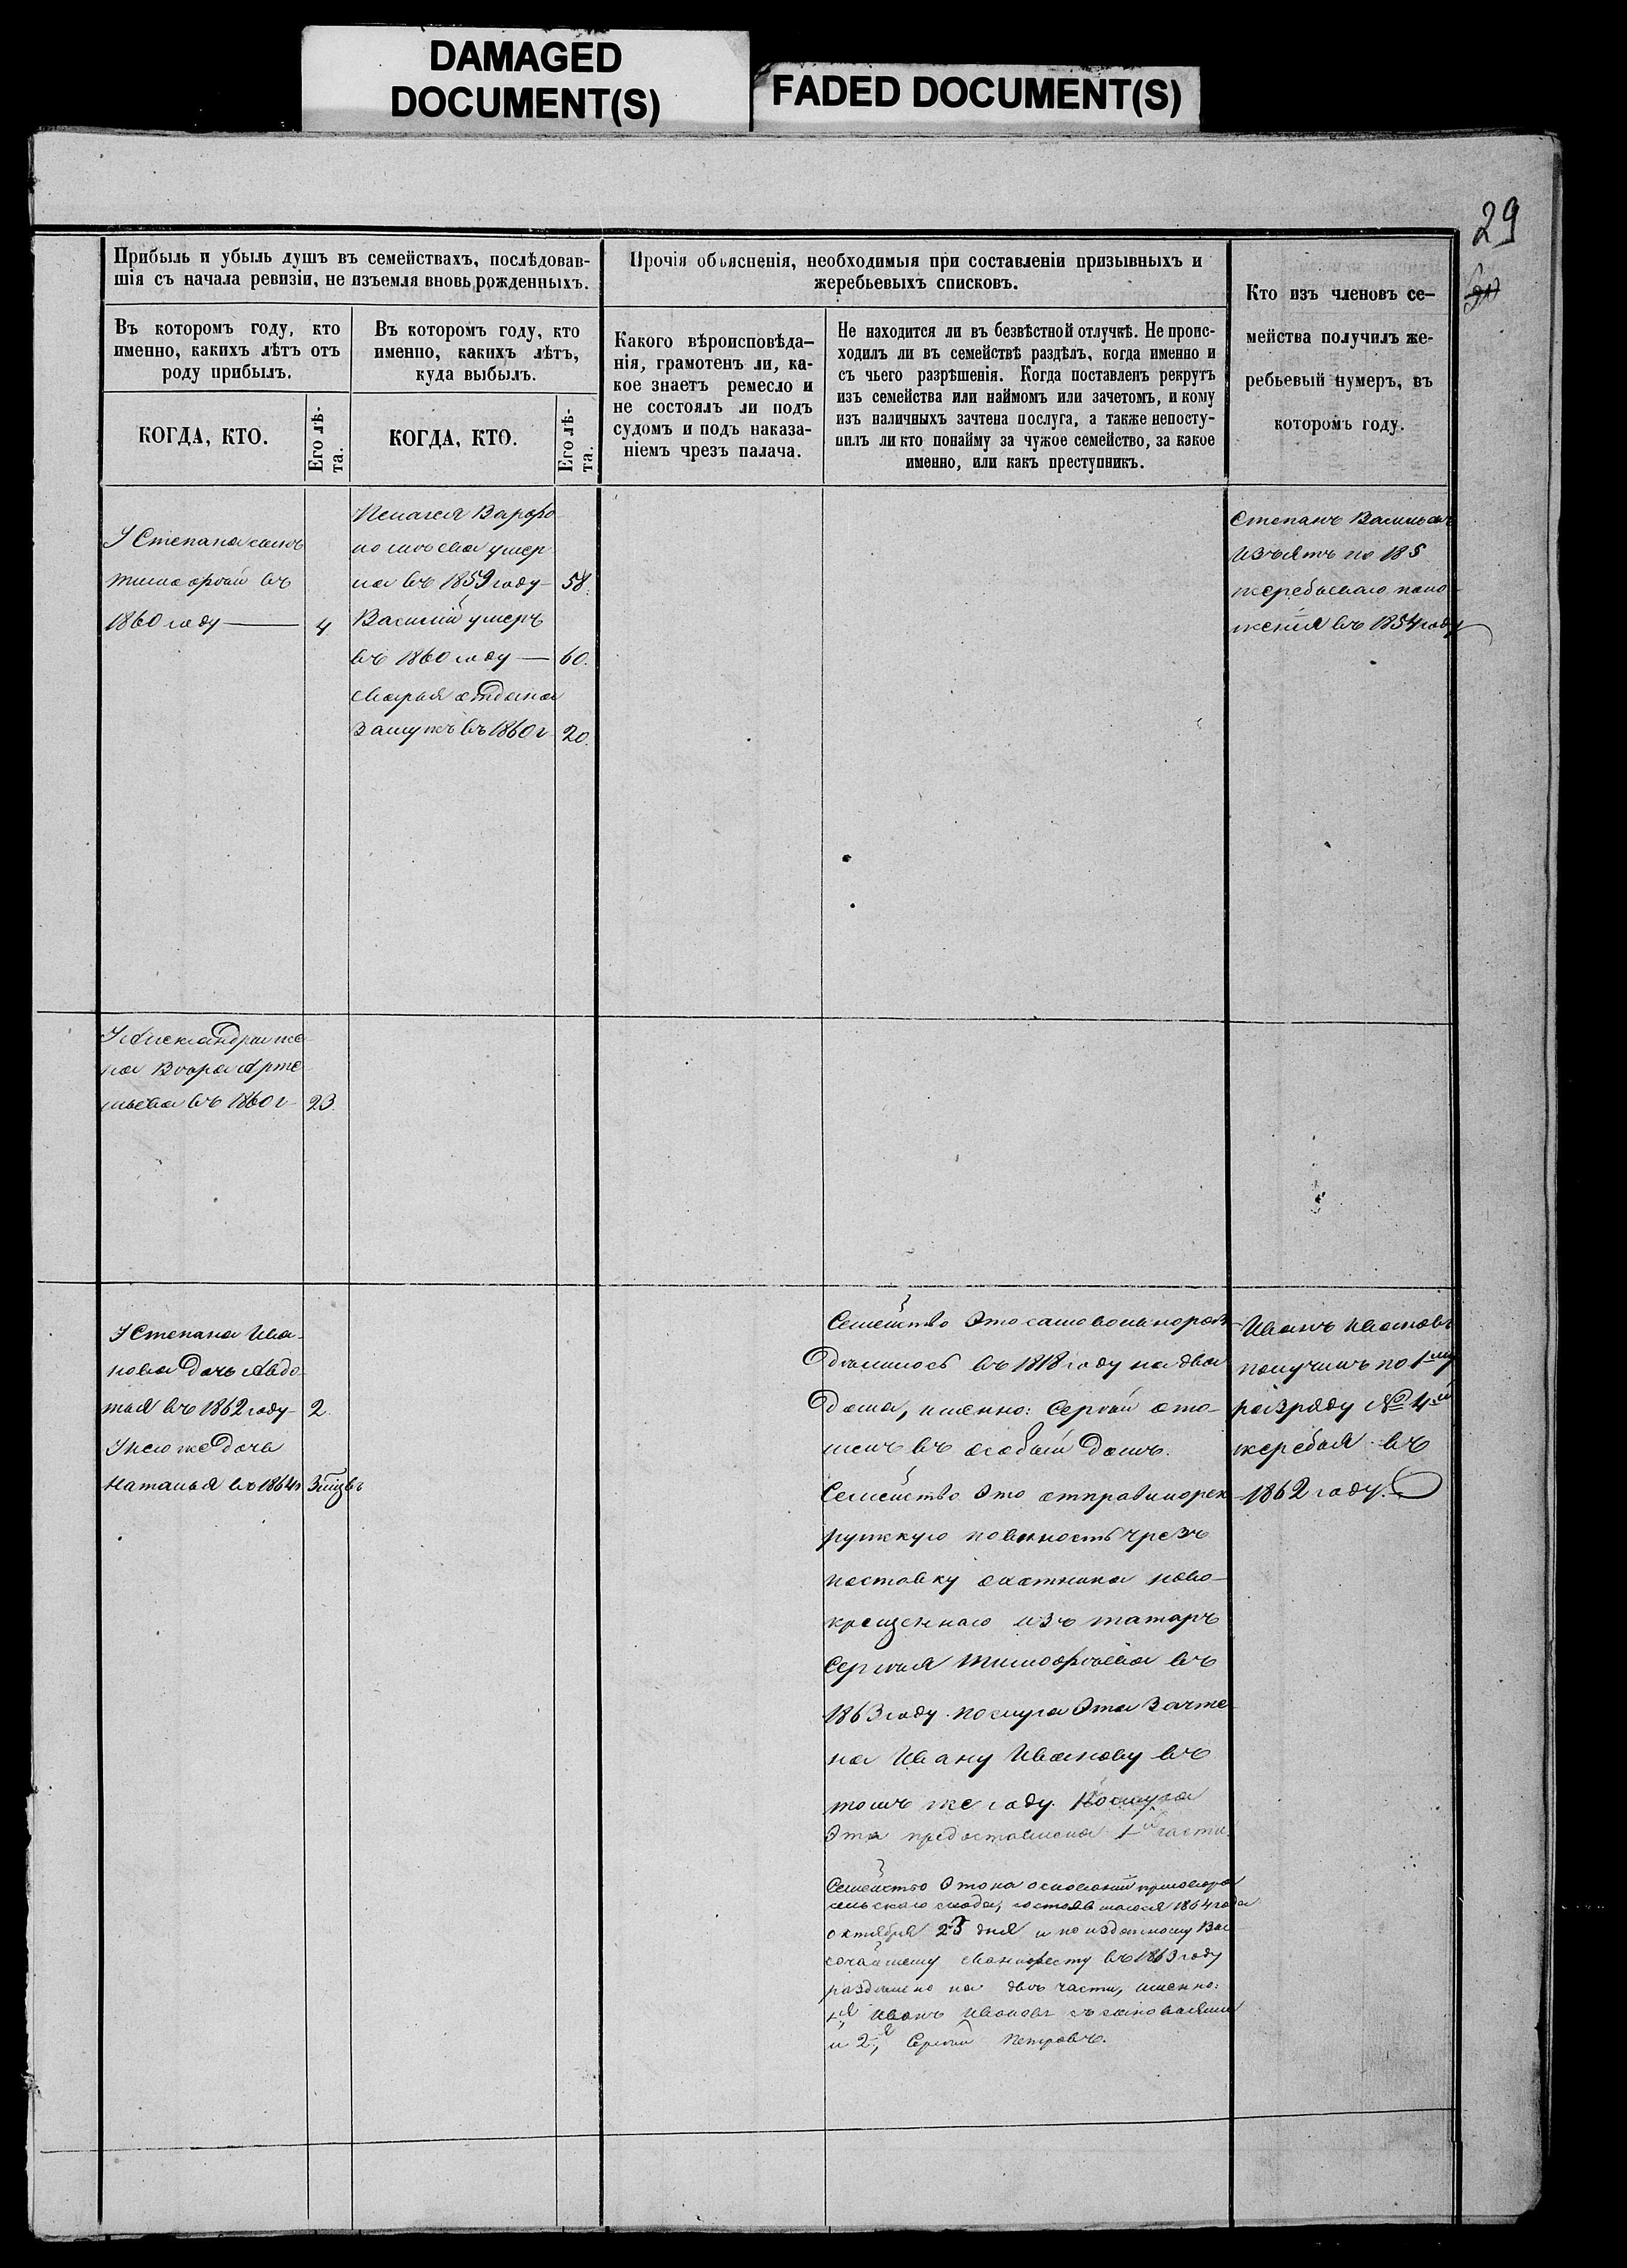 DAMAGED
DOCUMENT(S)
FADED DOCUMENT(S)
29
Прибыль и убыль душъ въ семействахъ, послѣдовав-
шія съ начала ревизіи, не изъемля вновь рожденныхъ.
Въ которомъ году, кто
именно, какихъ лѣтъ отъ
роду прибылъ.
КОГДА, КТО.
Его лѣ-
та.
Въ которомъ году, кто
именно, какихъ лѣтъ,
куда выбылъ.
КОГДА, КТО.
Его лѣ-
та.
Прочія объясненія, необходимыя при составленіи призывныхъ и
жеребьевыхъ списковъ.
Какого вѣроисповѣда-
нія, грамотенъ ли, ка-
кое знаетъ ремесло и
не состоялъ ли подъ
судомъ и подъ наказа-
ніемъ чрезъ палача.
Не находится ли въ безвѣстной отлучкѣ. Не проис-
ходилъ ли въ семействѣ раздѣлъ, когда именно и
съ чьего разрѣшенія. Когда поставленъ рекрутъ
изъ семейства или наймомъ или зачетомъ, и кому
изъ наличныхъ зачтена послуга, а также непосту-
пилъ ли кто понайму за чужое семейство, за какое
именно, или какъ преступникъ.
Кто изъ членовъ се-
мейства получилъ же-
ребьевый нумеръ, въ
которомъ году.
У Степана сынъ
Тимофѣй въ
1860 году — 4
Пелагея Варфо
ломѣева умер
ла въ 1859 году — 58.
Василій умеръ
въ 1860 году — 60.
Марья отдана
замужъ въ 1860 г 20.
Степанъ Васильевъ
изъятъ по 185
жеребьеваго поло
женія въ 1854 году
У Александра же
на Вѣра Арте
мьева въ 1860 г 23
У Степана Ива-
нова дочь Авдо-
тья въ 1862 году — 2.
У него же дочь
Наталья въ 1864 г 3 мцвъ
Семейство это самовольно раз
дѣлилось въ 1818 году на два
дома, именно: Сергѣй ото-
шелъ въ особый домъ.
Семейство это отправило рек
рутскую повинность чрезъ
поставку охотника ново-
крещеннаго изъ татаръ
Сергѣя Тимофѣева въ
1863 году. послуга эта зачте-
на Ивану Иванову въ
томъ же году. Послуга
эта предоставлена 1й части.
Семейство это на основаніи приговора
сельскаго схода, состоявшагося 1864 года
октября 23 дня и по изданному Вы
сочайшему Манифесту въ 1863 году
раздѣлено на двѣ части, именно:
1я Иванъ Ивановъ съ сыновьями
и 2я, Сергѣй Петровъ.
Иванъ Ивановъ
получилъ по 1му
разряду № 4й
жеребья въ
1862 году.